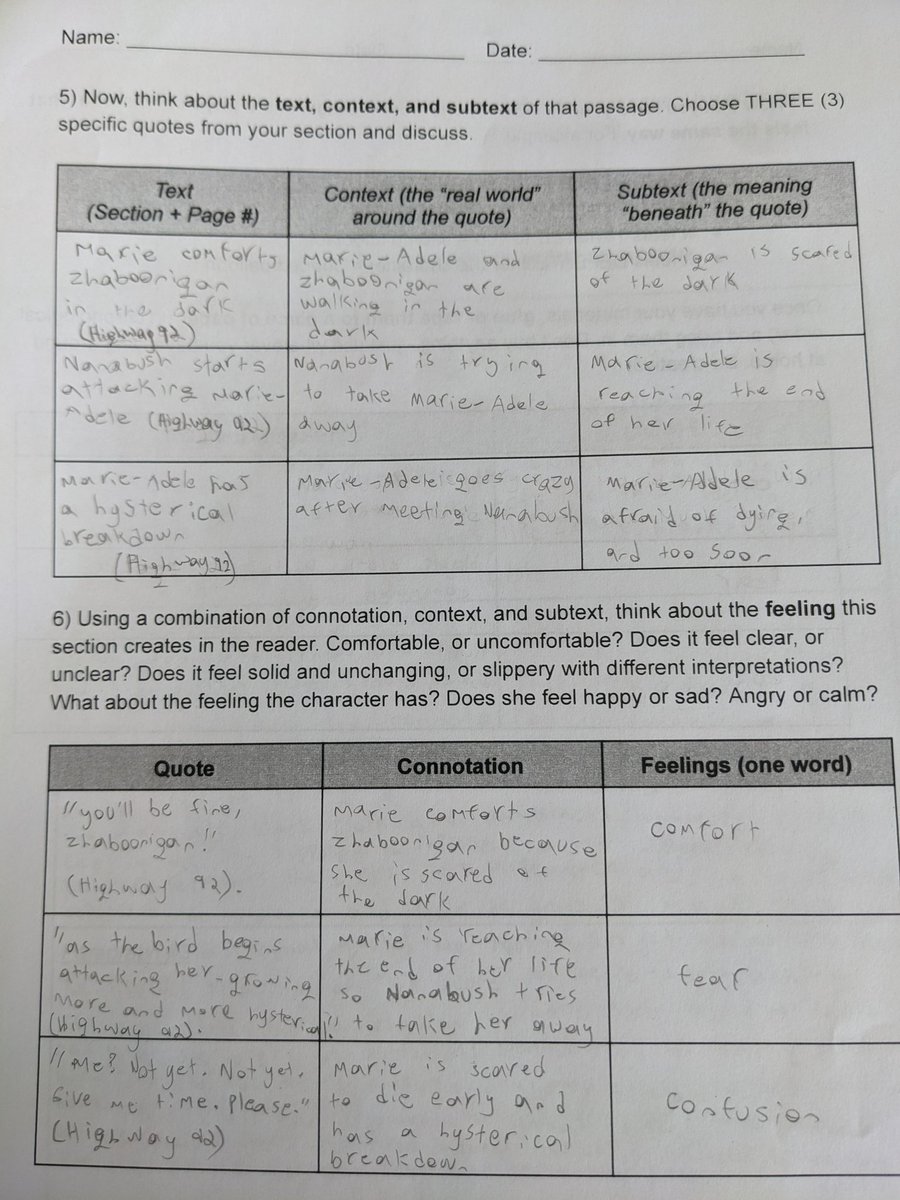 Name:
Date:
5) Now, think about the text, context, and subtext of that passage. Choose THREE (3)
specific quotes from your section and discuss.
Text
(Section + Page #)
Context (the “real world”
around the quote)
Subtext (the meaning
“beneath” the quote)
Marie comforts
zhaboonigan
in the dark
(Highway 92)
Marie-Adele and
zhaboonigan are
walking in the
dark
Zhaboonigan is scared
of the dark
Nanabush starts
attacking Marie-
Adele (Highway 92)
Nanabosh is trying
to take Marie-Adele
away
Marie-Adele is
reaching the end
of her life
Marie-Adele has
a hysterical
breakdown
(Highway 92)
Marie-Adele goes crazy
after meeting Nanabush
Marie-Adele is
afraid of dying,
and too soon
6) Using a combination of connotation, context, and subtext, think about the feeling this
section creates in the reader. Comfortable, or uncomfortable? Does it feel clear, or
unclear? Does it feel solid and unchanging, or slippery with different interpretations?
What about the feeling the character has? Does she feel happy or sad? Angry or calm?
Quote
Connotation
Feelings (one word)
"you'll be fine,
zhaboonigan!"
(Highway 92).
Marie comforts
zhaboonigan because
she is scared of
the dark
comfort
"as the bird begins
attacking her-growing
more and more hysterical!"
(Highway 92).
Marie is reaching
the end of her life
so Nanabush tries
to take her away
fear
"Me? Not yet. Not yet.
Give me time. Please."
(Highway 92)
Marie is scared
to die early and
has a hysterical
breakdown
Confusion